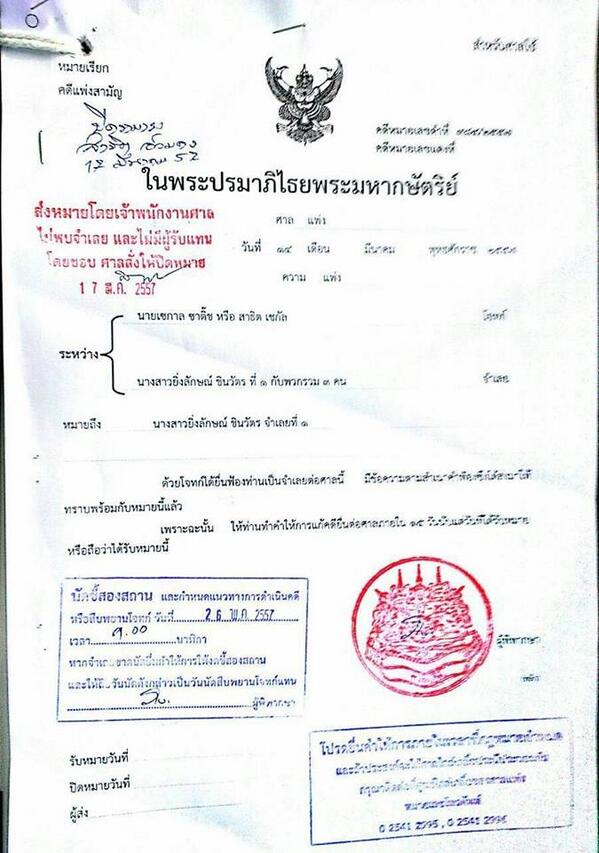 สำหรับศาลใช้
หมายเรียก
คดีแพ่งสามัญ
ปิดหมาย
17 มีนาคม 57
คดีหมายเลขดำที่ ๓๘๕/๒๕๕๗
คดีหมายเลขแดงที่
ในพระปรมาภิไธยพระมหากษัตริย์
ส่งหมายโดยเจ้าพนักงานศาล
ไม่พบจำเลย และไม่มีผู้รับแทน
โดยชอบ ศาลสั่งให้ปิดหมาย
1 7 มี.ค. 2557
ศาล แพ่ง
วันที่ ๑๔ เดือน มีนาคม พุทธศักราช ๒๕๕๗
ความ แพ่ง
นายเซกาล ซาติ๊ช หรือ สาธิต เซกัล โจทก์
ระหว่าง
นางสาวยิ่งลักษณ์ ชินวัตร ที่ ๑ กับพวกรวม ๓ คน จำเลย
หมายถึง นางสาวยิ่งลักษณ์ ชินวัตร จำเลยที่ ๑
ด้วยโจทก์ได้ยื่นฟ้องท่านเป็นจำเลยต่อศาลนี้ มีข้อความตามสำเนาคำฟ้องซึ่งได้ส่งมาให้
ทราบพร้อมกับหมายนี้แล้ว
เพราะฉะนั้น ให้ท่านทำคำให้การแก้คดียื่นต่อศาลภายใน ๑๕ วันนับแต่วันที่ได้รับหมาย
หรือถือว่าได้รับหมายนี้
นัดชี้สองสถาน และกำหนดแนวทางการดำเนินคดี
หรือสืบพยานโจทก์ วันที่ 2 6 พ.ค. 2557
เวลา 9.00 นาฬิกา
หากจำเลยขาดนัดยื่นคำให้การให้งดชี้สองสถาน
และให้ถือวันนัดดังกล่าวเป็นวันนัดสืบพยานโจทก์แทน
ผู้พิพากษา
ผู้พิพากษา
รับหมายวันที่
ปิดหมายวันที่
ผู้ส่ง
โปรดยื่นคำให้การภายในเวลาที่กฎหมายกำหนด
หมายเลขโทรศัพท์
0 2541 2995 , 0 2541 2996